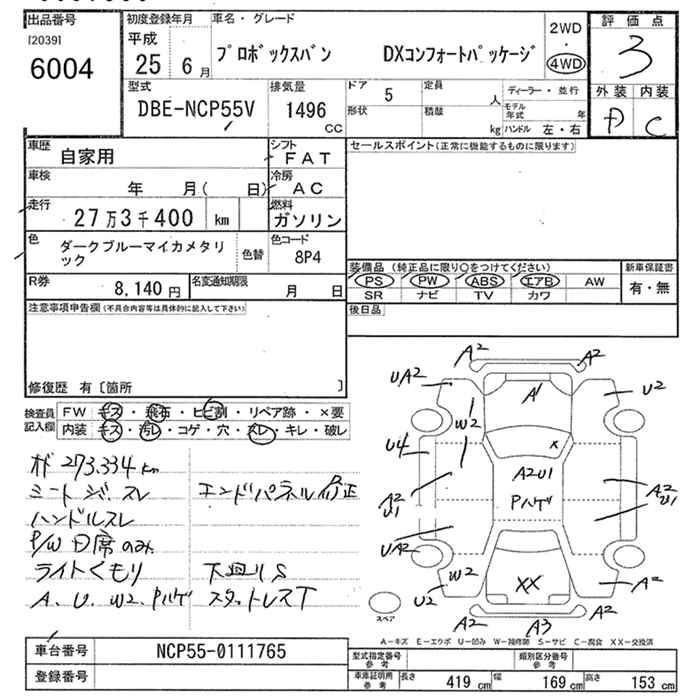 出品番号 初度登録年月 車名・グレード 2WD・4WD 評価点
[2039] 平成
6004 25 6月 プロボックスバン DXコンフォートパッケージ 3
型式 排気量 ドア 定員 ディーラー・並行 外装 内装
DBE-NCP55V 1496 CC 5 人 モデル年式 年 D C
形状 積載 kg ハンドル 左・右
車歴 自家用 シフト FAT セールスポイント(正常に機能するものに限ります)
車検 年 月( 日) 冷房 AC
走行 27万3千400 km 燃料 ガソリン
色 ダークブルーマイカメタリック 色替 色コード 8P4
装備品 (純正品に限り○をつけてください) 新車保証書
R券 8,140円 名変通知期限 月 日 PS PW ABS エアB AW 有・無
SR ナビ TV カワ
注意事項申告欄(不具合内容等は具体的に記入して下さい) 後日品
修復歴 有〔箇所 〕
検査員記入欄 FW キズ・飛石・ヒビ割・リペア跡・×要
内装 キズ・汚レ・コゲ・穴・スレ・キレ・破レ
273.334km
シート ジ.スレ エンドパネル修正
ハンドルスレ
P/W D席のみ
ライトくもり 下廻りS
A、U、W2、Pハゲ スタットレスT
A2 A2
UA2 A1 U2
W2
U4 X
A2 U1 A2U1 A2 U1
Pハゲ
UA2
W2 XX
U2 A2
A2 A3 A2
スペア
A-キズ E-エクボ U-凹み W-補修跡 S-サビ C-腐食 XX-交換済
車台番号 NCP55-0111765 型式指定番号 参考 類別区分番号 参考
登録番号 車庫証明用 参考 長さ 419cm 幅 169cm 高さ 153cm